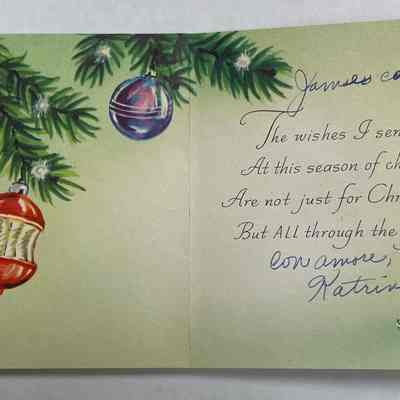 The wishes I sen
At this season of ch
Are not just for Chr
But ALL through the
con amore,
Katrin